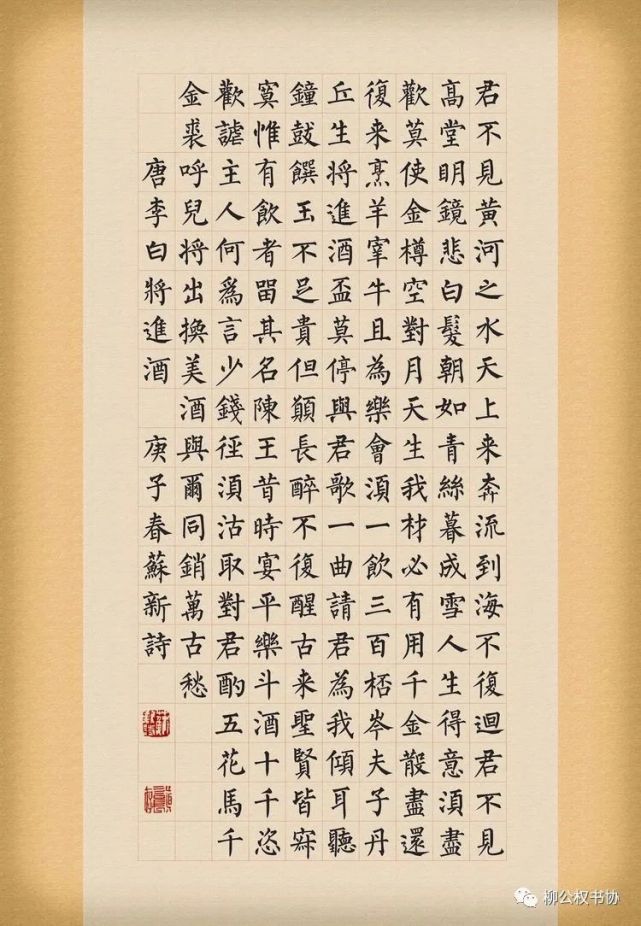 君不見黄河之水天上来奔流到海不復迴君不見
髙堂明鏡悲白髮朝如青絲暮成雪人生得意須盡
歡莫使金樽空對月天生我材必有用千金散盡還
復来烹羊宰牛且為樂會須一飲三百桮岑夫子丹
丘生將進酒盃莫停與君歌一曲請君為我傾耳聽
鐘鼓饌玉不足貴但願長醉不復醒古来聖賢皆寂
寞惟有飲者留其名陳王昔時宴平樂斗酒十千恣
歡謔主人何爲言少錢徑須沽取對君酌五花馬千
金裘呼兒將出換美酒與爾同銷萬古愁
唐李白將進酒 庚子春蘇新詩
柳公权书协